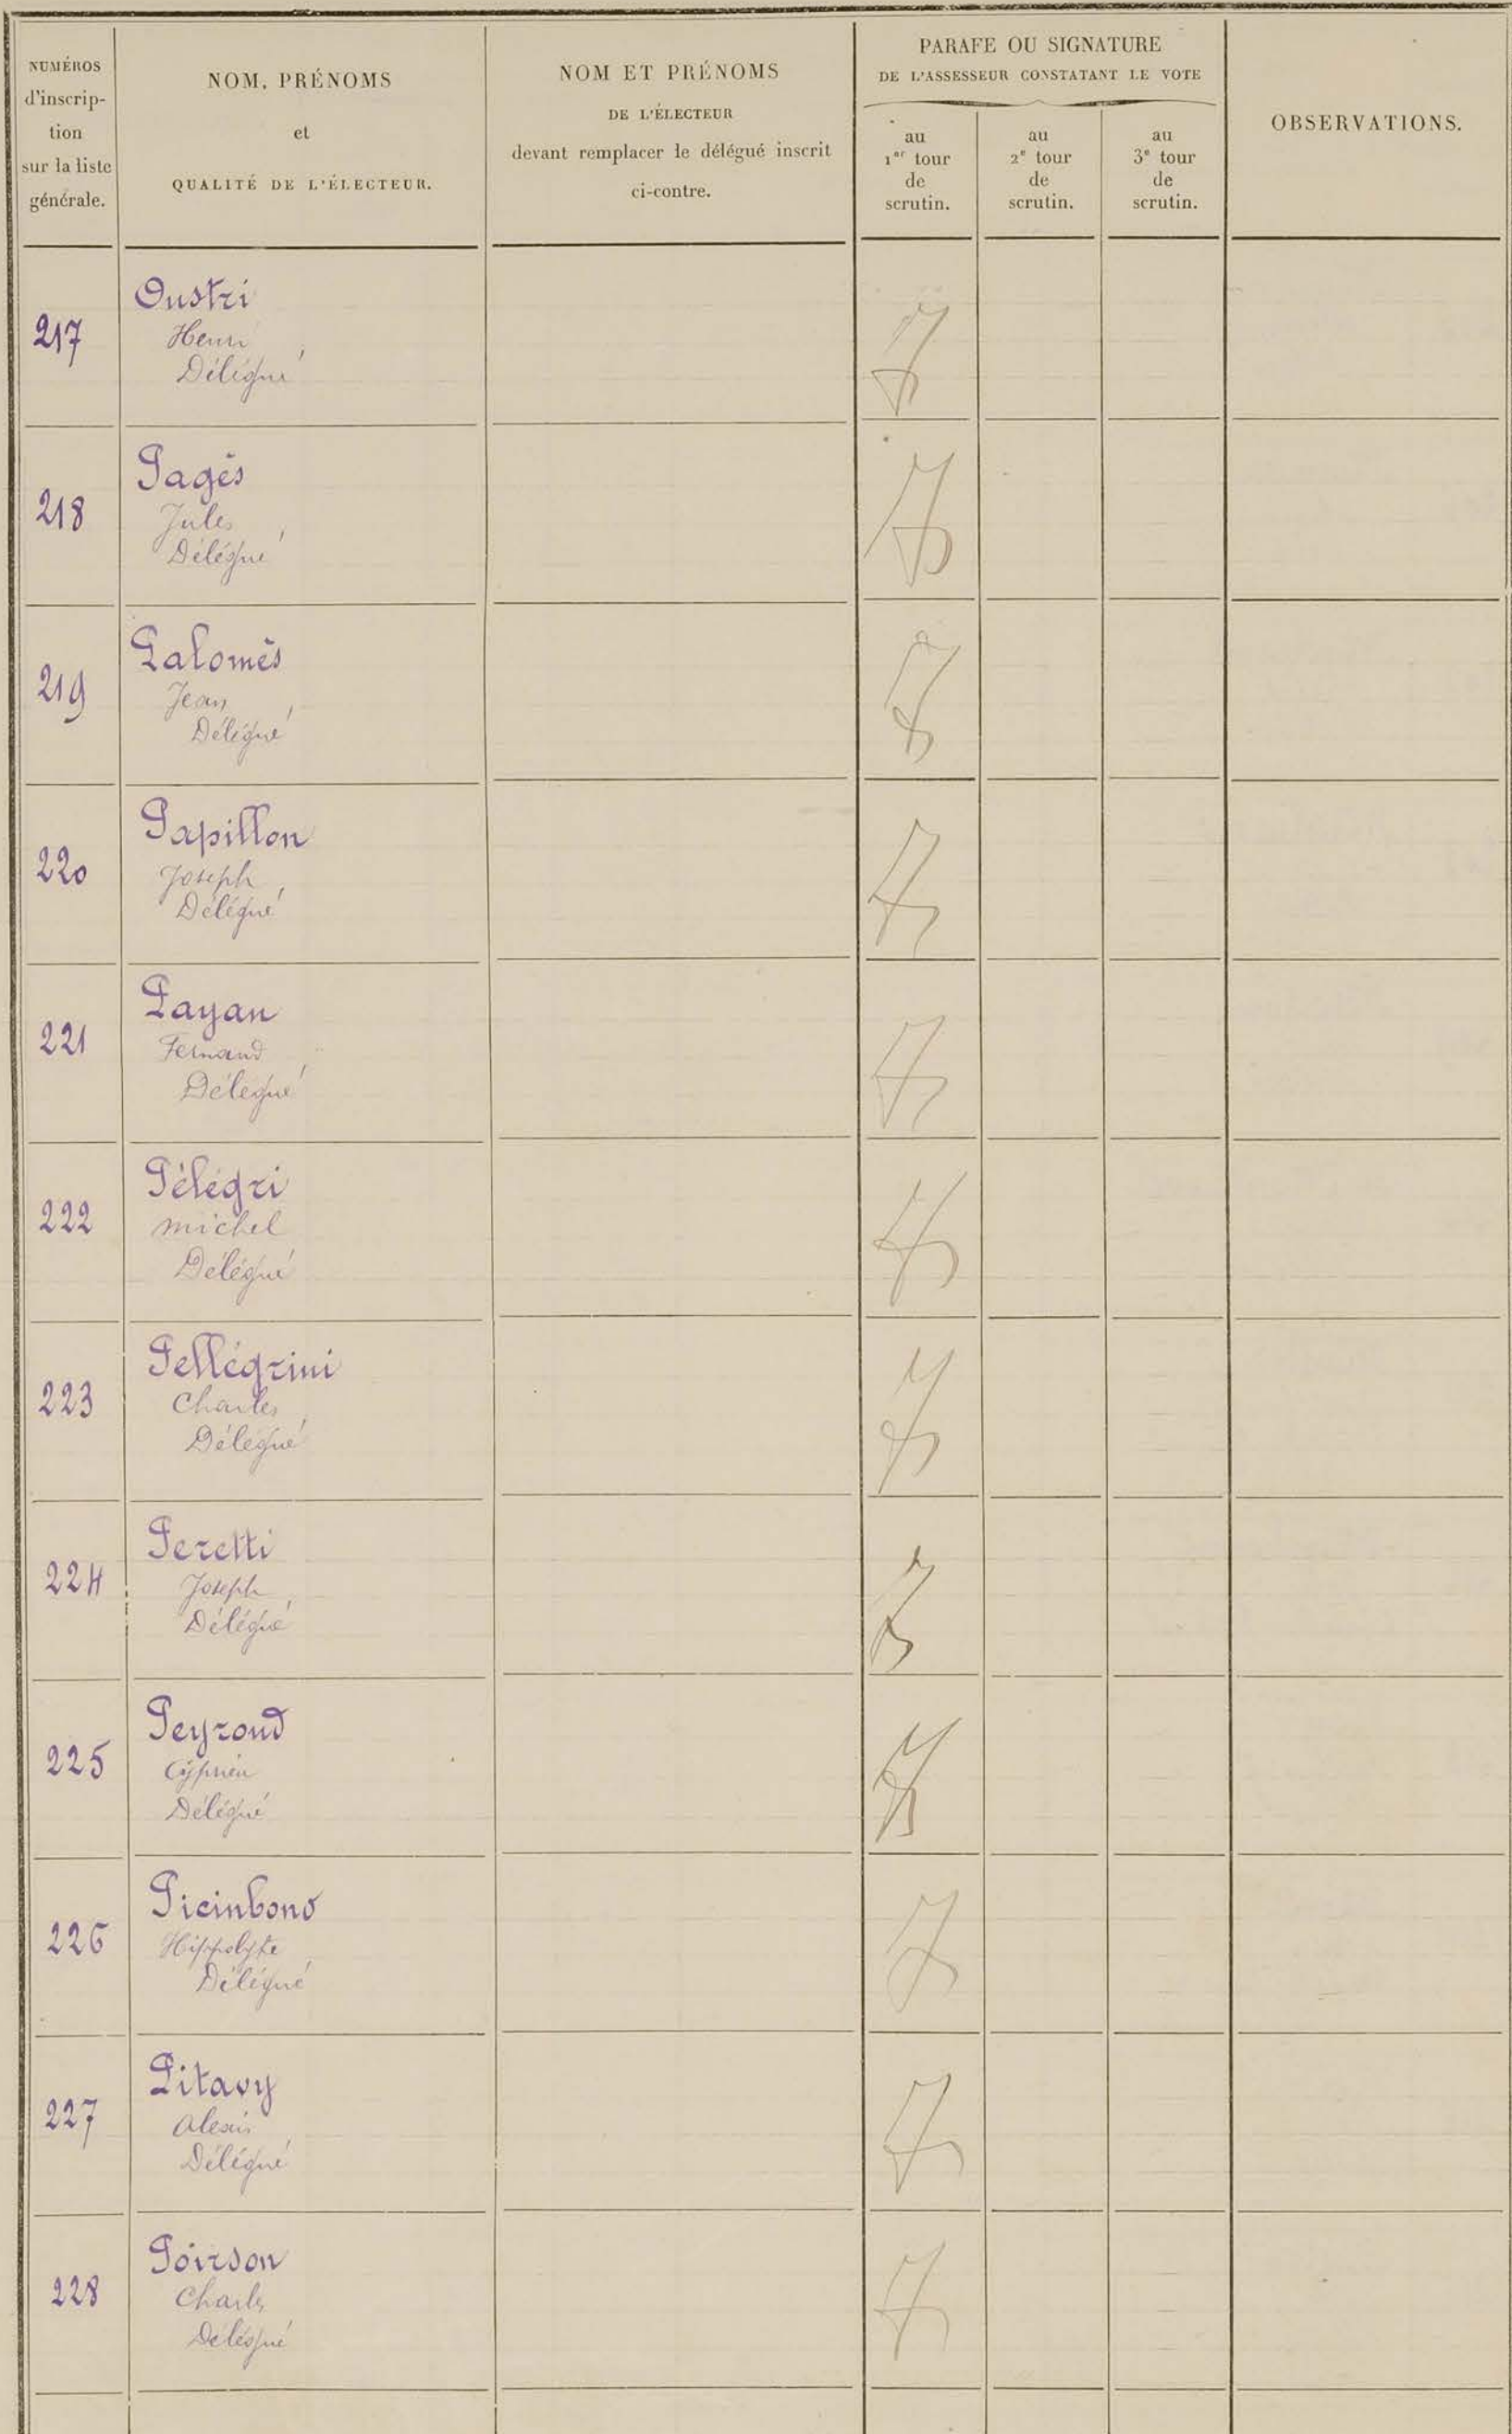 NUMÉROS
d'inscrip-
tion
sur la liste
générale.
NOM, PRÉNOMS
et
QUALITÉ DE L'ÉLECTEUR.
NOM ET PRÉNOMS
DE L'ÉLECTEUR
devant remplacer le délégué inscrit
ci-contre.
PARAFE OU SIGNATURE
DE L'ASSESSEUR CONSTATANT LE VOTE
au
1er tour
de
scrutin.
au
2e tour
de
scrutin.
au
3e tour
de
scrutin.
OBSERVATIONS.
217
Oustri
Henri
Délégué
218
Pagès
Jules
Délégué
219
Palomès
Jean
Délégué
220
Papillon
Joseph
Délégué
221
Payan
Fernand
Délégué
222
Pélégri
Michel
Délégué
223
Pellégrini
Charles
Délégué
224
Peretti
Joseph
Délégué
225
Peyrond
Cyprien
Délégué
226
Picinbono
Hippolyte
Délégué
227
Pitavy
Alexis
Délégué
228
Poirson
Charles
Délégué